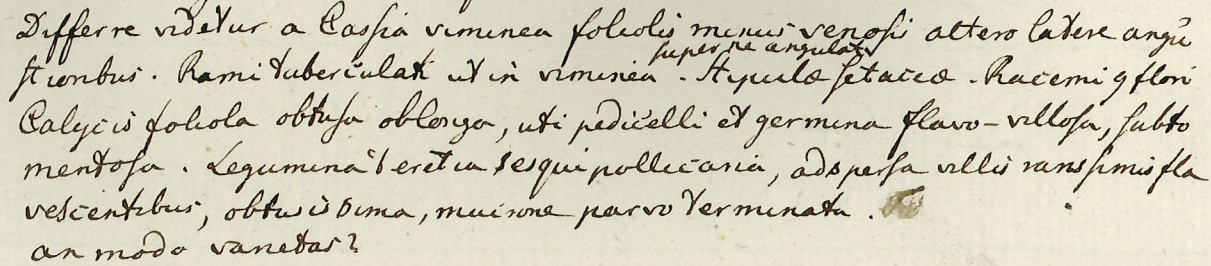 Differre videtur a Cassia viminea foliolis minus venosis altero latere angu
superne angulati
stioribus. Rami tuberculati ut in viminea. Stipulæ setaceæ. Racemi 9 flori
Calycis foliola obtusa oblonga, uti pedicelli et germina flavo-villosa, subto
mentosa. Legumina teretia sesquipollicaria, adspersa villis rarissimis fla
vescentibus, obtusissima, mucrone parvo terminata.
an modo varietas?